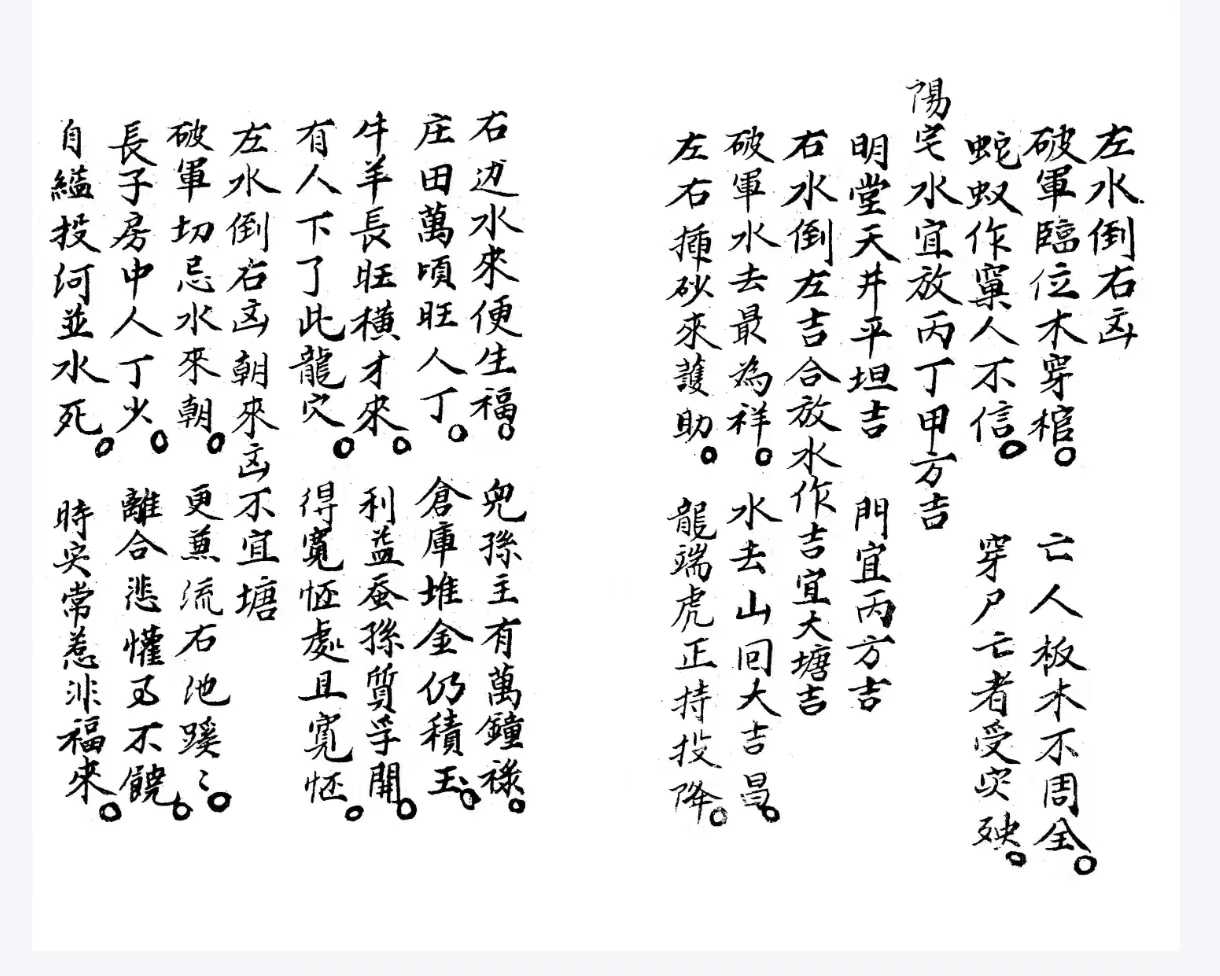 左水倒右凶
破軍臨位木穿棺。 亡人板木不周全。
蛇蚁作窠人不信。 穿尸亡者受灾殃。
陽宅水宜放丙丁甲方吉
明堂天井平坦吉 門宜丙方吉
右水倒左吉合放水作吉宜大塘吉
破軍水去最為祥。 水去山回大吉昌。
左右插砂來護助。 龍端虎正持投降。
右边水來便生福。 兒孫主有萬鐘祿。
庄田萬頃旺人丁。 倉庫堆金仍積玉。
牛羊長旺横才來。 利益蚕孫質孚開。
有人下了此龍穴。 得寬怀處且寬怀。
左水倒右凶朝來凶不宜塘
破軍切忌水來朝。 更兼流右池蹊々。
長子房中人丁少。 離合悲懽不饒。
自縊投河並水死。 時灾常惹非福來。